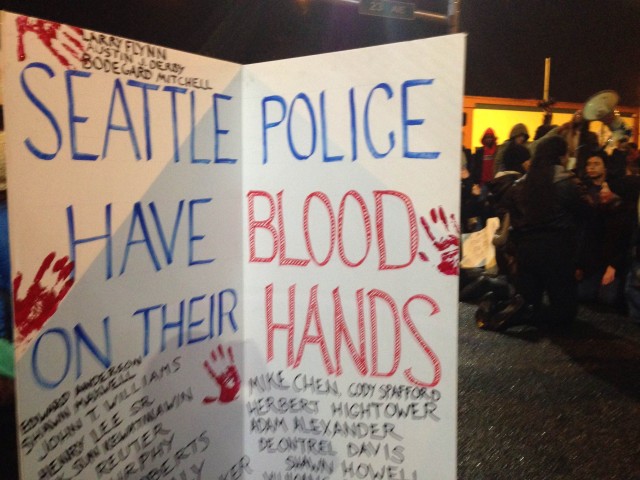 23rd AVE
LARRY FLYNN
AUSTIN J. DERBY
BODEGARD MITCHELL
SEATTLE POLICE
HAVE BLOOD
ON THEIR HANDS
EDWARD ANDERSON
SHAWN MAXWELL
JOHN T. WILLIAMS
HENRY LEE SR.
SUN
REUTER
MURPHY
MIKE CHEN, CODY SPAFFORD
HERBERT HIGHTOWER
ADAM ALEXANDER
DEONTREL DAVIS
SHAWN HOWELL